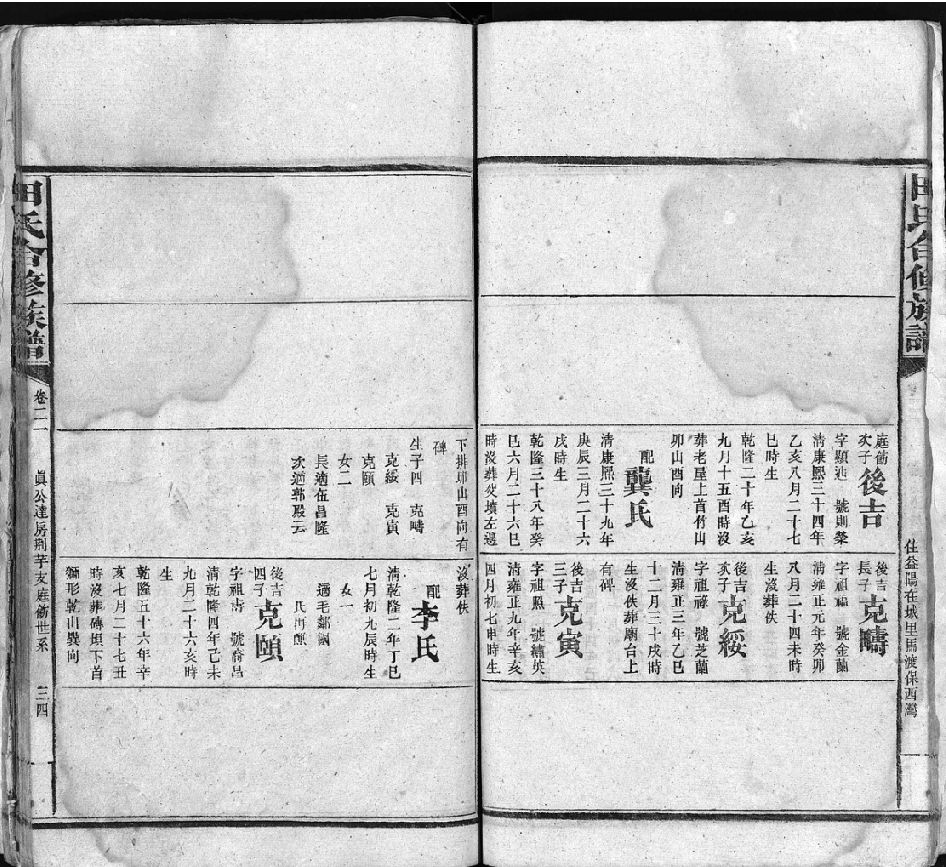 田氏合修族譜
住益陽在城里馬渡保西灣
庭衛
次子
後吉
字顯達 號則榮
清康熙三十四年
乙亥八月二十七
巳時生
乾隆二十年乙亥
九月十五酉時沒
葬老屋上首竹山
卯山酉向
配
龔氏
清康熙三十九年
庚辰三月二十六
戌時生
乾隆三十八年癸
巳六月二十六巳
時沒葬
墳左邊
下排卯山酉向有
碑
生子四 克疇
克綏 克寅
克頤
女二
長適伍昌隆
次適郭殿云
後吉
長子
克疇
字祖福 號金蘭
清雍正元年癸卯
八月二十四未時
生沒葬佚
後吉
次子
克綏
字祖祿 號芝蘭
清雍正三年乙巳
十二月三十戌時
生沒佚葬廟台上
有碑
後吉
三子
克寅
字祖照 號繡英
清雍正九年辛亥
四月初七申時生
沒葬佚
配
李氏
清乾隆二年丁巳
七月初九辰時生
女一
適毛
氏再
後吉
四子
克頤
字祖壽 號
清乾隆四年己未
九月二十六亥時
生
乾隆五十六年辛
亥七月二十七丑
時沒葬磚垻下首
獅形乾山巽向
田氏合修族譜
卷二
眞公達房荊芋支庭衛世系
三四